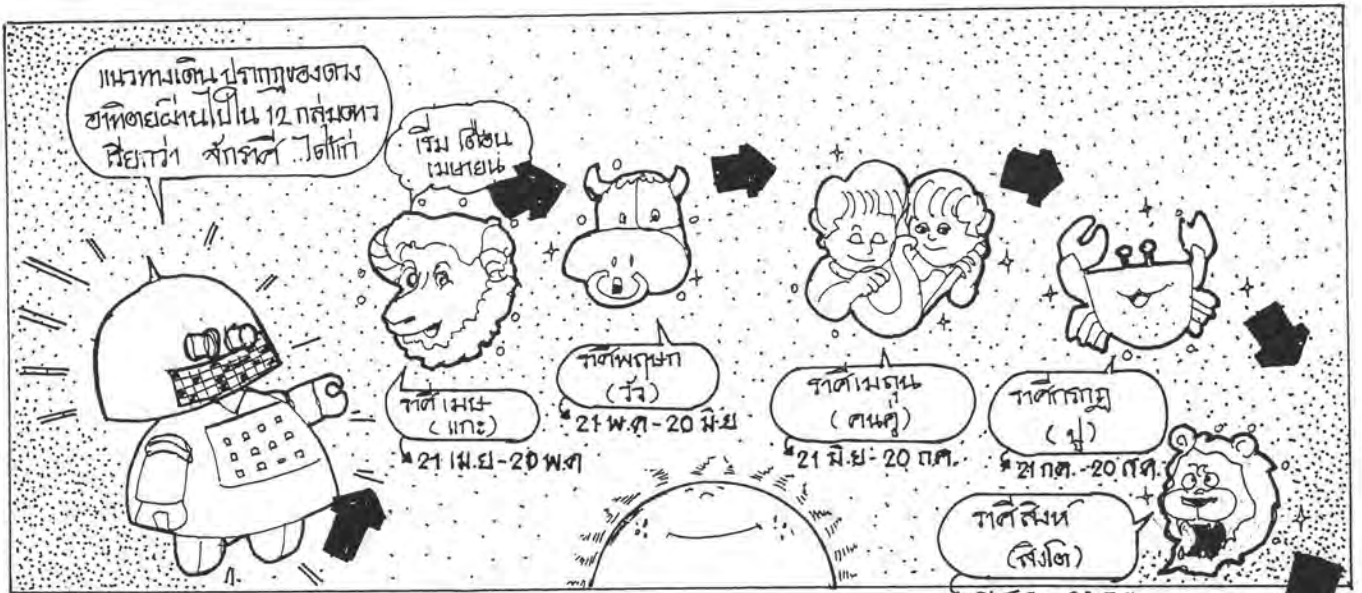 แนวทางเดินปรากฏของดวง
อาทิตย์ผ่านไปใน 12 กลุ่มดาว
เรียกว่า จักราศี ..ได้แก่
เริ่ม เดือน
เมษายน
ราศีเมษ
(แกะ)
*21 เม.ย-20 พ.ค
ราศีพฤษก
(วัว)
*21 พ.ค-20 มิ.ย
ราศีเมถุน
(คนคู่)
*21 มิ.ย-20 ก.ค.
ราศีกรกฎ
(ปู)
*21 ก.ค.-20 ส.ค.
ราศีสิงห์
(สิงโต)